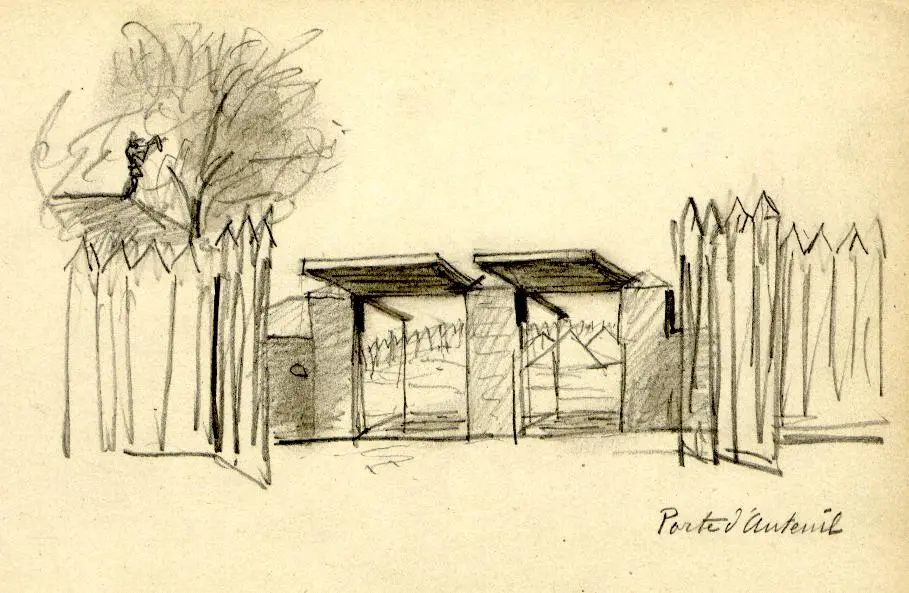 Porte d'Auteuil